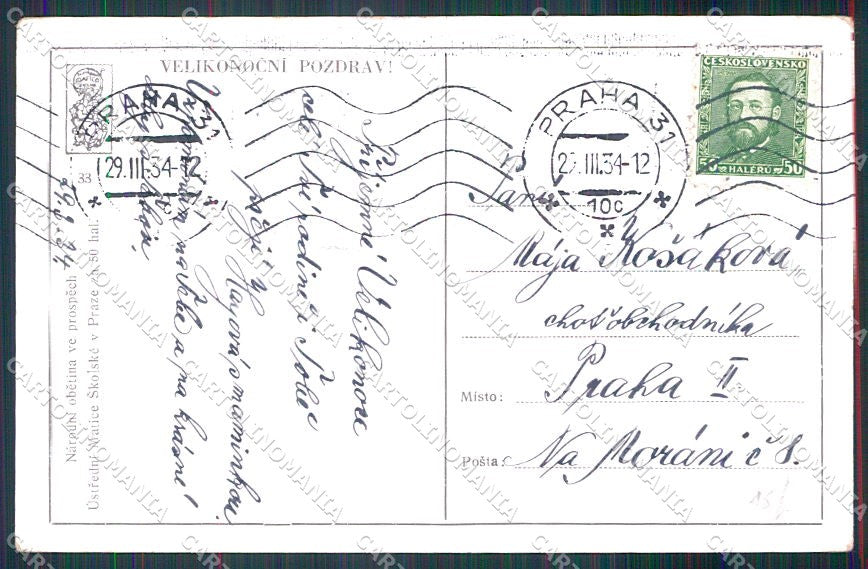 VELIKONOČNÍ POZDRAV!
PRAHA 31
29.III.34-12
33
Národní obětina ve prospěch
Ústřední Matice Školské v Praze za 50 hal.
Příjemné Velikonoce
celé Tvé rodině i Tobě
přejí
s maminkou.
Vzpomínám na Tebe a na krásné
29.3.34
PRAHA 31
29.III.34-12
10c
ČESKOSLOVENSKO
50 HALÉŘŮ 50
Paní
Mája Košáková
choť obchodníka
Místo: Praha II
Pošta: Na Moráni č 8.
CARTOLINOMANIA